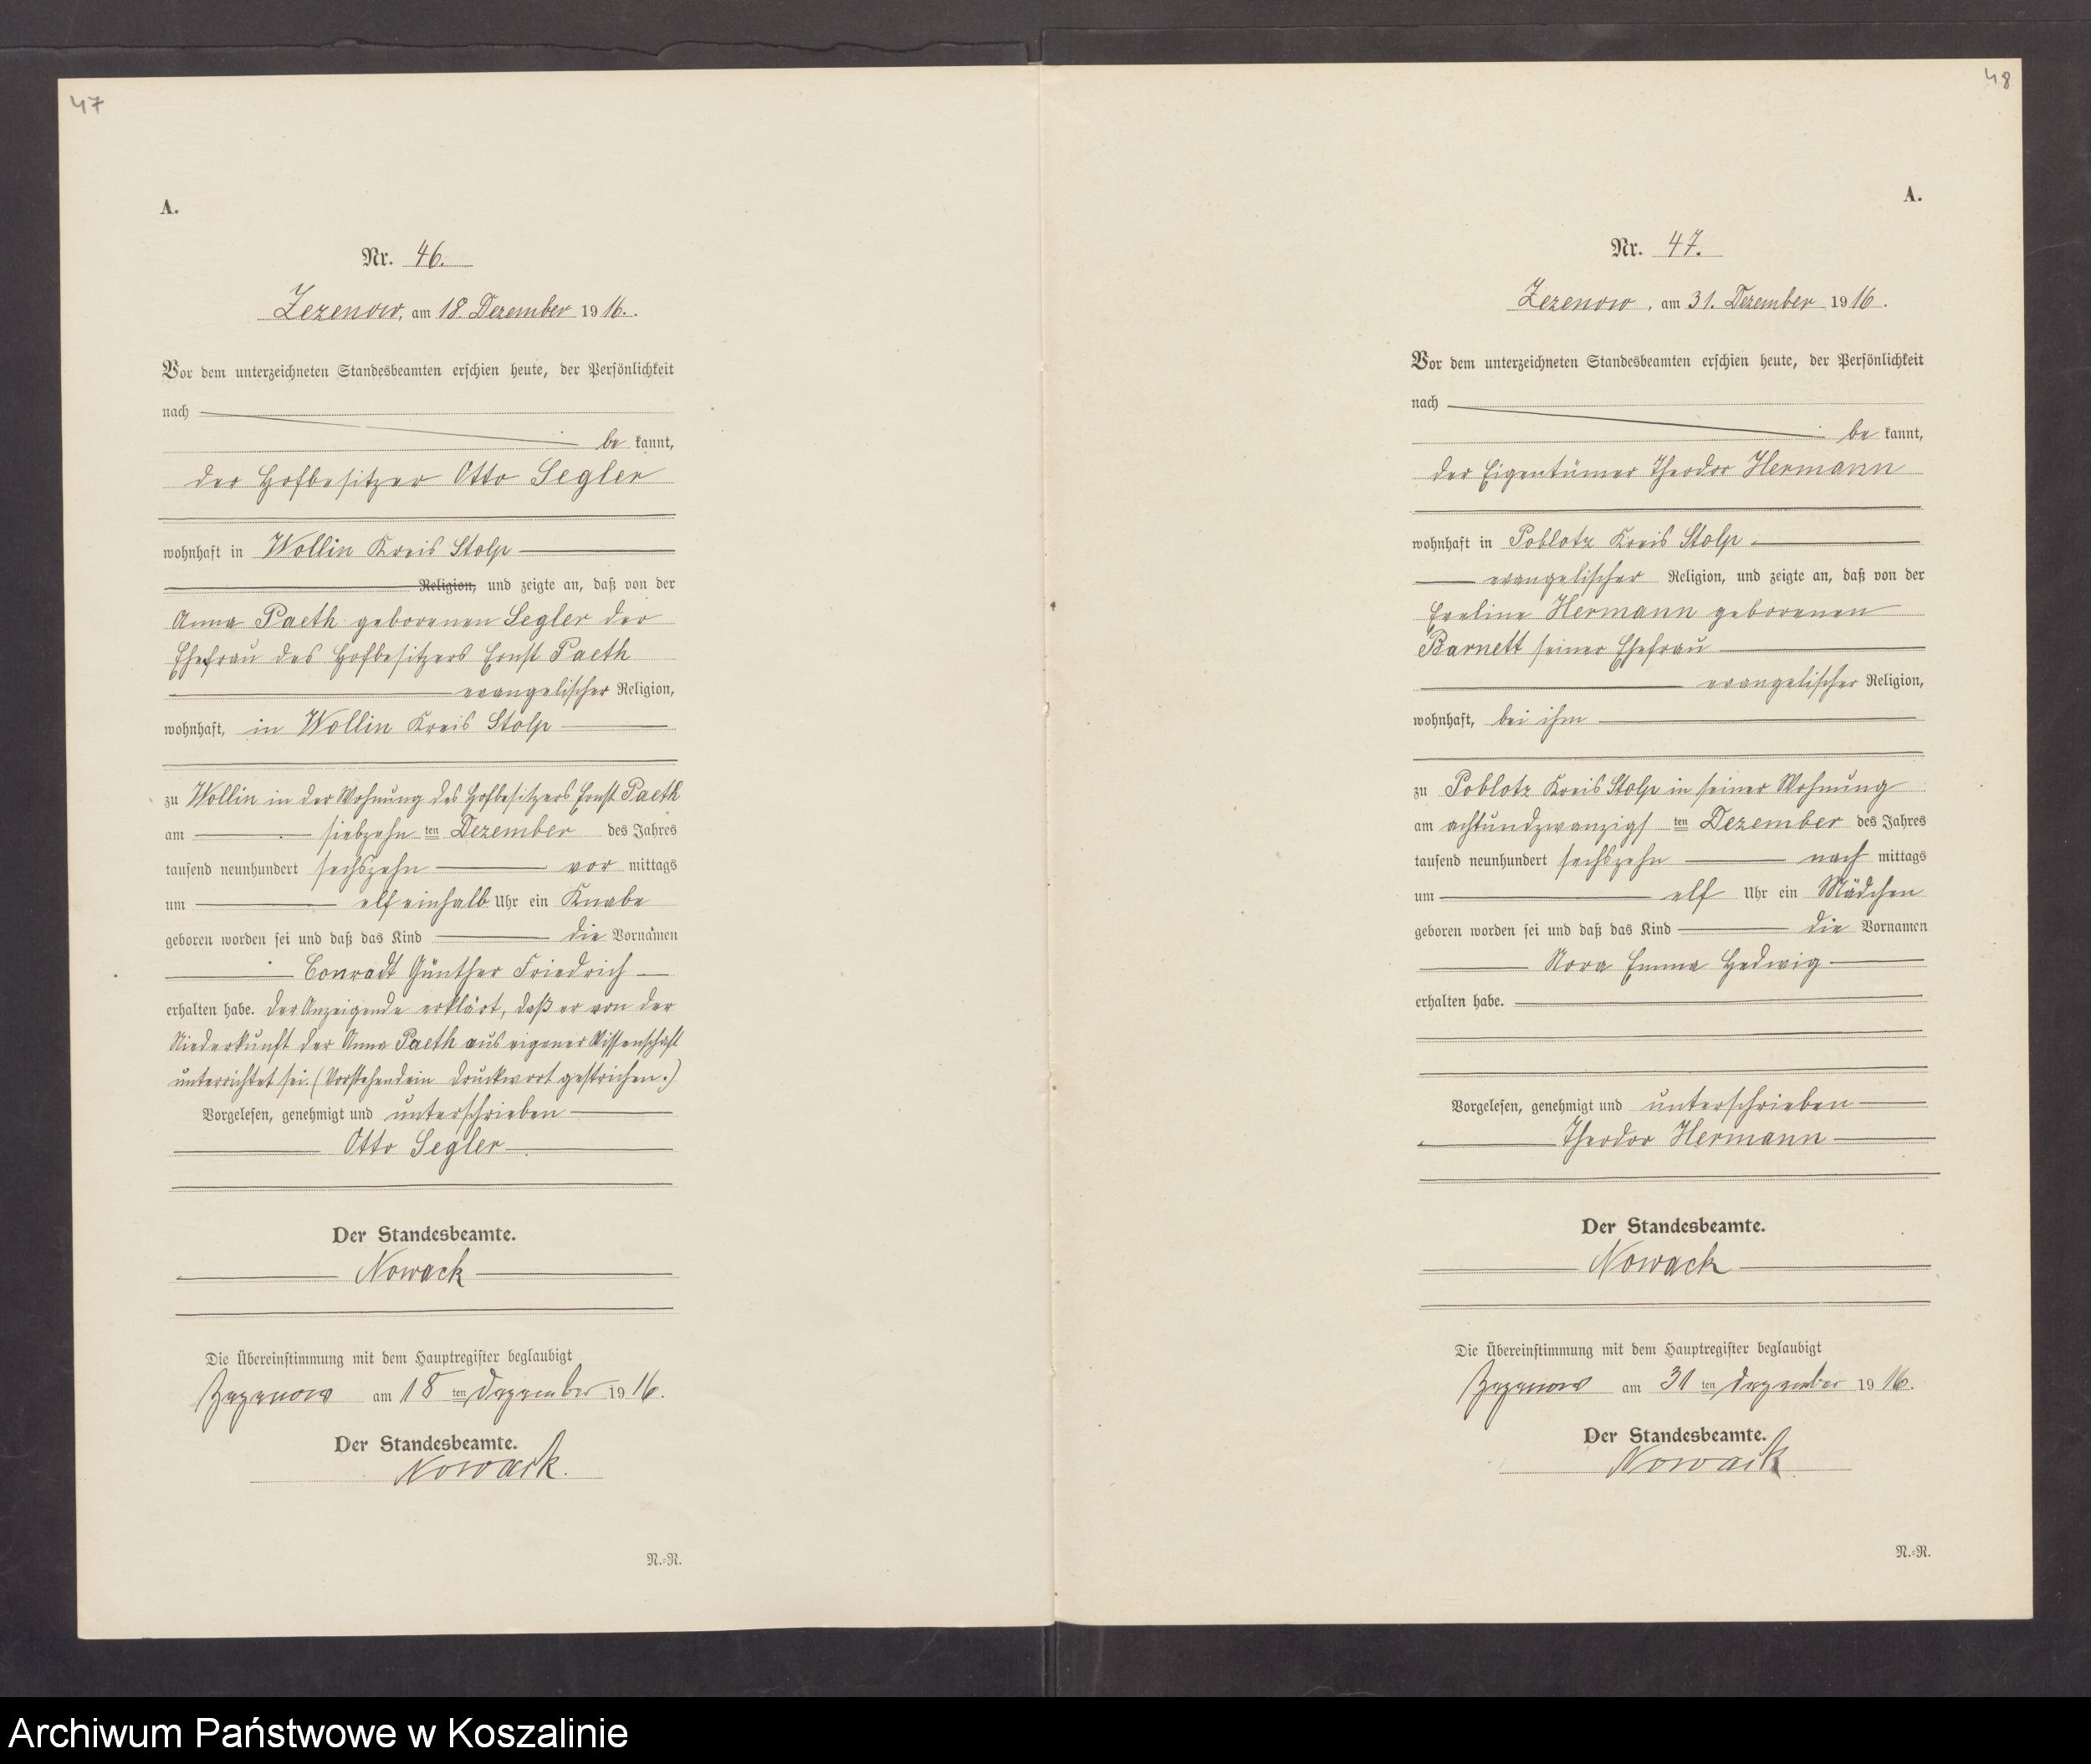 47
A.
Nr. 46.
Zezenow, am 18. Dezember 1916.
Vor dem unterzeichneten Standesbeamten erschien heute, der Persönlichkeit
nach
be kannt,
der Hofbesitzer Otto Segler
wohnhaft in Wollin Kreis Stolp
Religion, und zeigte an, daß von der
Anna Paeth geborenen Segler der
Ehefrau des Hofbesitzers Ernst Paeth
evangelischer Religion,
wohnhaft, in Wollin Kreis Stolp
zu Wollin in der Wohnung des Hofbesitzers Ernst Paeth
am siebzehn ten Dezember des Jahres
tausend neunhundert sechszehn vor mittags
um elf einhalb Uhr ein Knabe
geboren worden sei und daß das Kind die Vornamen
Conradt Günther Friedrich
erhalten habe. Der Anzeigende erklärt, daß er von der
Niederkunft der Anna Paeth aus eigener Wissenschaft
unterrichtet sei. (Vorstehend ein Druckwort gestrichen.)
Vorgelesen, genehmigt und unterschrieben
Otto Segler
Der Standesbeamte.
Nowack
Die Übereinstimmung mit dem Hauptregister beglaubigt
Zezenow am 18 ten Dezember 1916.
Der Standesbeamte.
Nowack.
N.-R.
48
A.
Nr. 47.
Zezenow, am 31. Dezember 1916.
Vor dem unterzeichneten Standesbeamten erschien heute, der Persönlichkeit
nach
be kannt,
der Eigentümer Theodor Hermann
wohnhaft in Poblotz Kreis Stolp
evangelischer Religion, und zeigte an, daß von der
Eveline Hermann geborenen
Barnett seiner Ehefrau
evangelischer Religion,
wohnhaft, bei ihm
zu Poblotz Kreis Stolp in seiner Wohnung
am achtundzwanzigs ten Dezember des Jahres
tausend neunhundert sechszehn nach mittags
um elf Uhr ein Mädchen
geboren worden sei und daß das Kind die Vornamen
Nora Emma Hedwig
erhalten habe.
Vorgelesen, genehmigt und unterschrieben
Theodor Hermann
Der Standesbeamte.
Nowack
Die Übereinstimmung mit dem Hauptregister beglaubigt
Zezenow am 31 ten Dezember 1916.
Der Standesbeamte.
Nowack
N.-R.
Archiwum Państwowe w Koszalinie